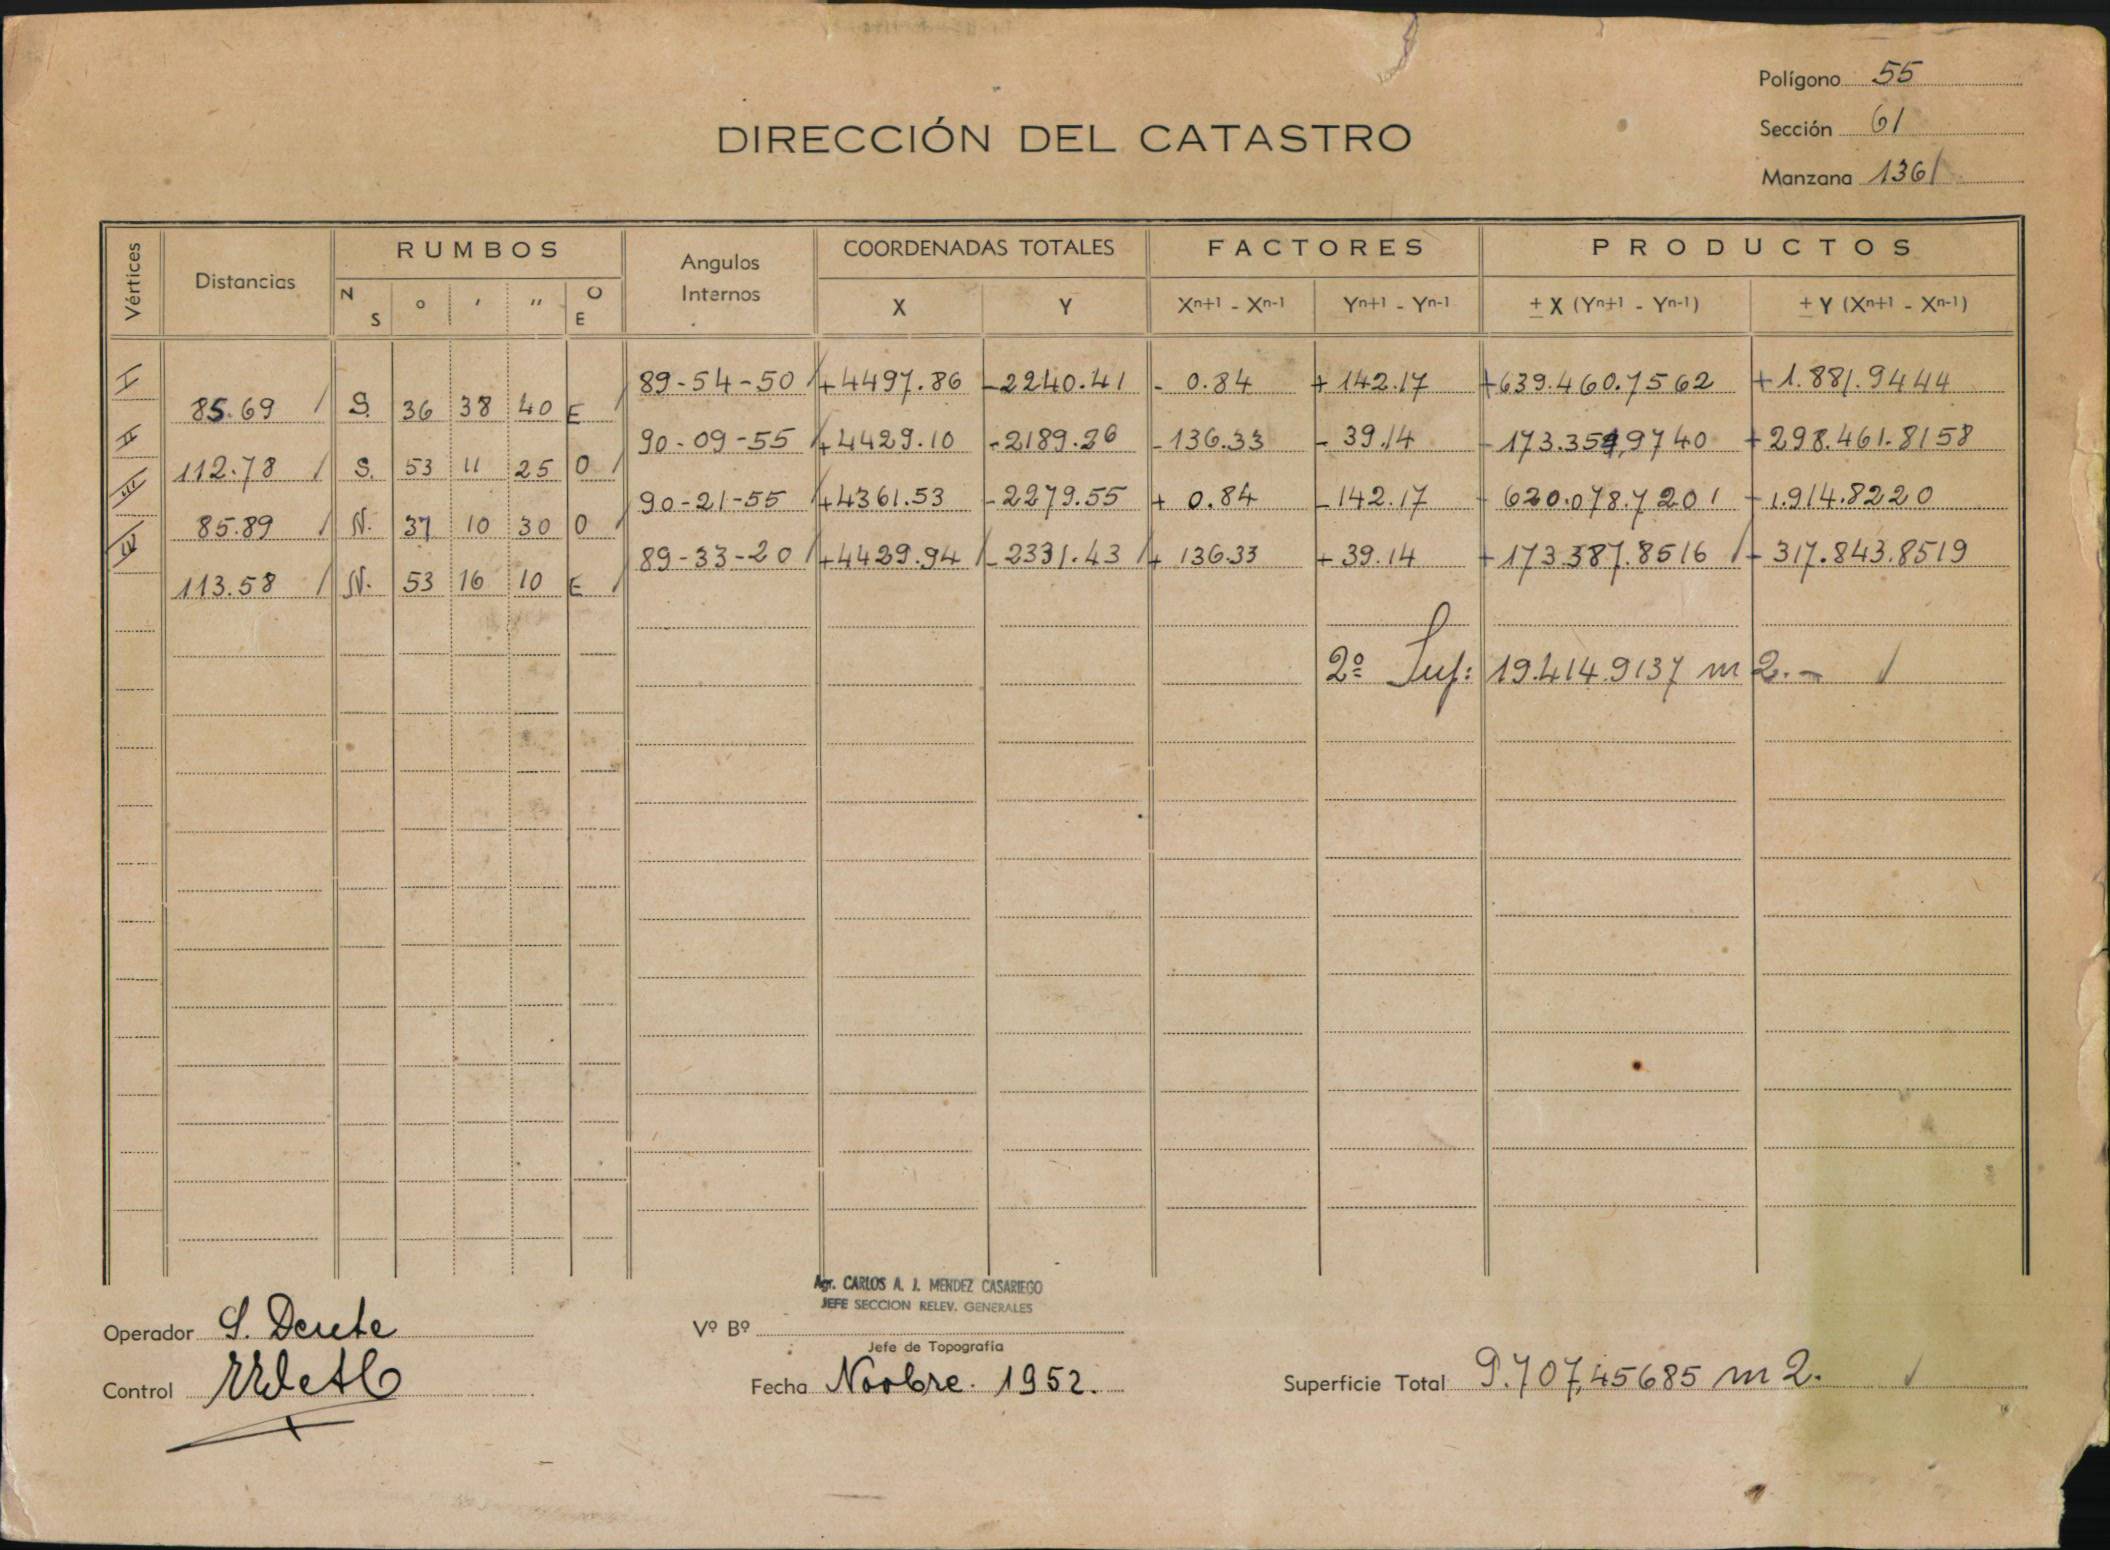 Polígono 55
Sección 61
Manzana 1361
DIRECCIÓN DEL CATASTRO
Vértices Distancias RUMBOS Angulos Internos COORDENADAS TOTALES FACTORES PRODUCTOS
N S o ' " O E X Y Xn+1 - Xn-1 Yn+1 - Yn-1 ± X (Yn+1 - Yn-1) ± Y (Xn+1 - Xn-1)
I 89-54-50 +4497.86 -2240.41 - 0.84 + 142.17 +639.460.7562 +1.881.9444
85.69 S. 36 38 40 E
II 90-09-55 +4429.10 -2189.26 -136.33 - 39.14 -173.354,9740 +298.461.8158
112.78 S. 53 11 25 O
III 90-21-55 +4361.53 -2279.55 + 0.84 -142.17 - 620.078.7201 -1.914.8220
85.89 N. 37 10 30 O
IV 89-33-20 +4429.94 -2331.43 + 136.33 +39.14 +173.387.8516 - 317.843.8519
113.58 N. 53 16 10 E
2º Sup: 19.414.9137 m2.-
Agr. CARLOS A. J. MENDEZ CASARIEGO
JEFE SECCION RELEV. GENERALES
Operador S.
Vº Bº
Jefe de Topografía
Control
Fecha Noobre. 1952.
Superficie Total 9.707,45685 m2.